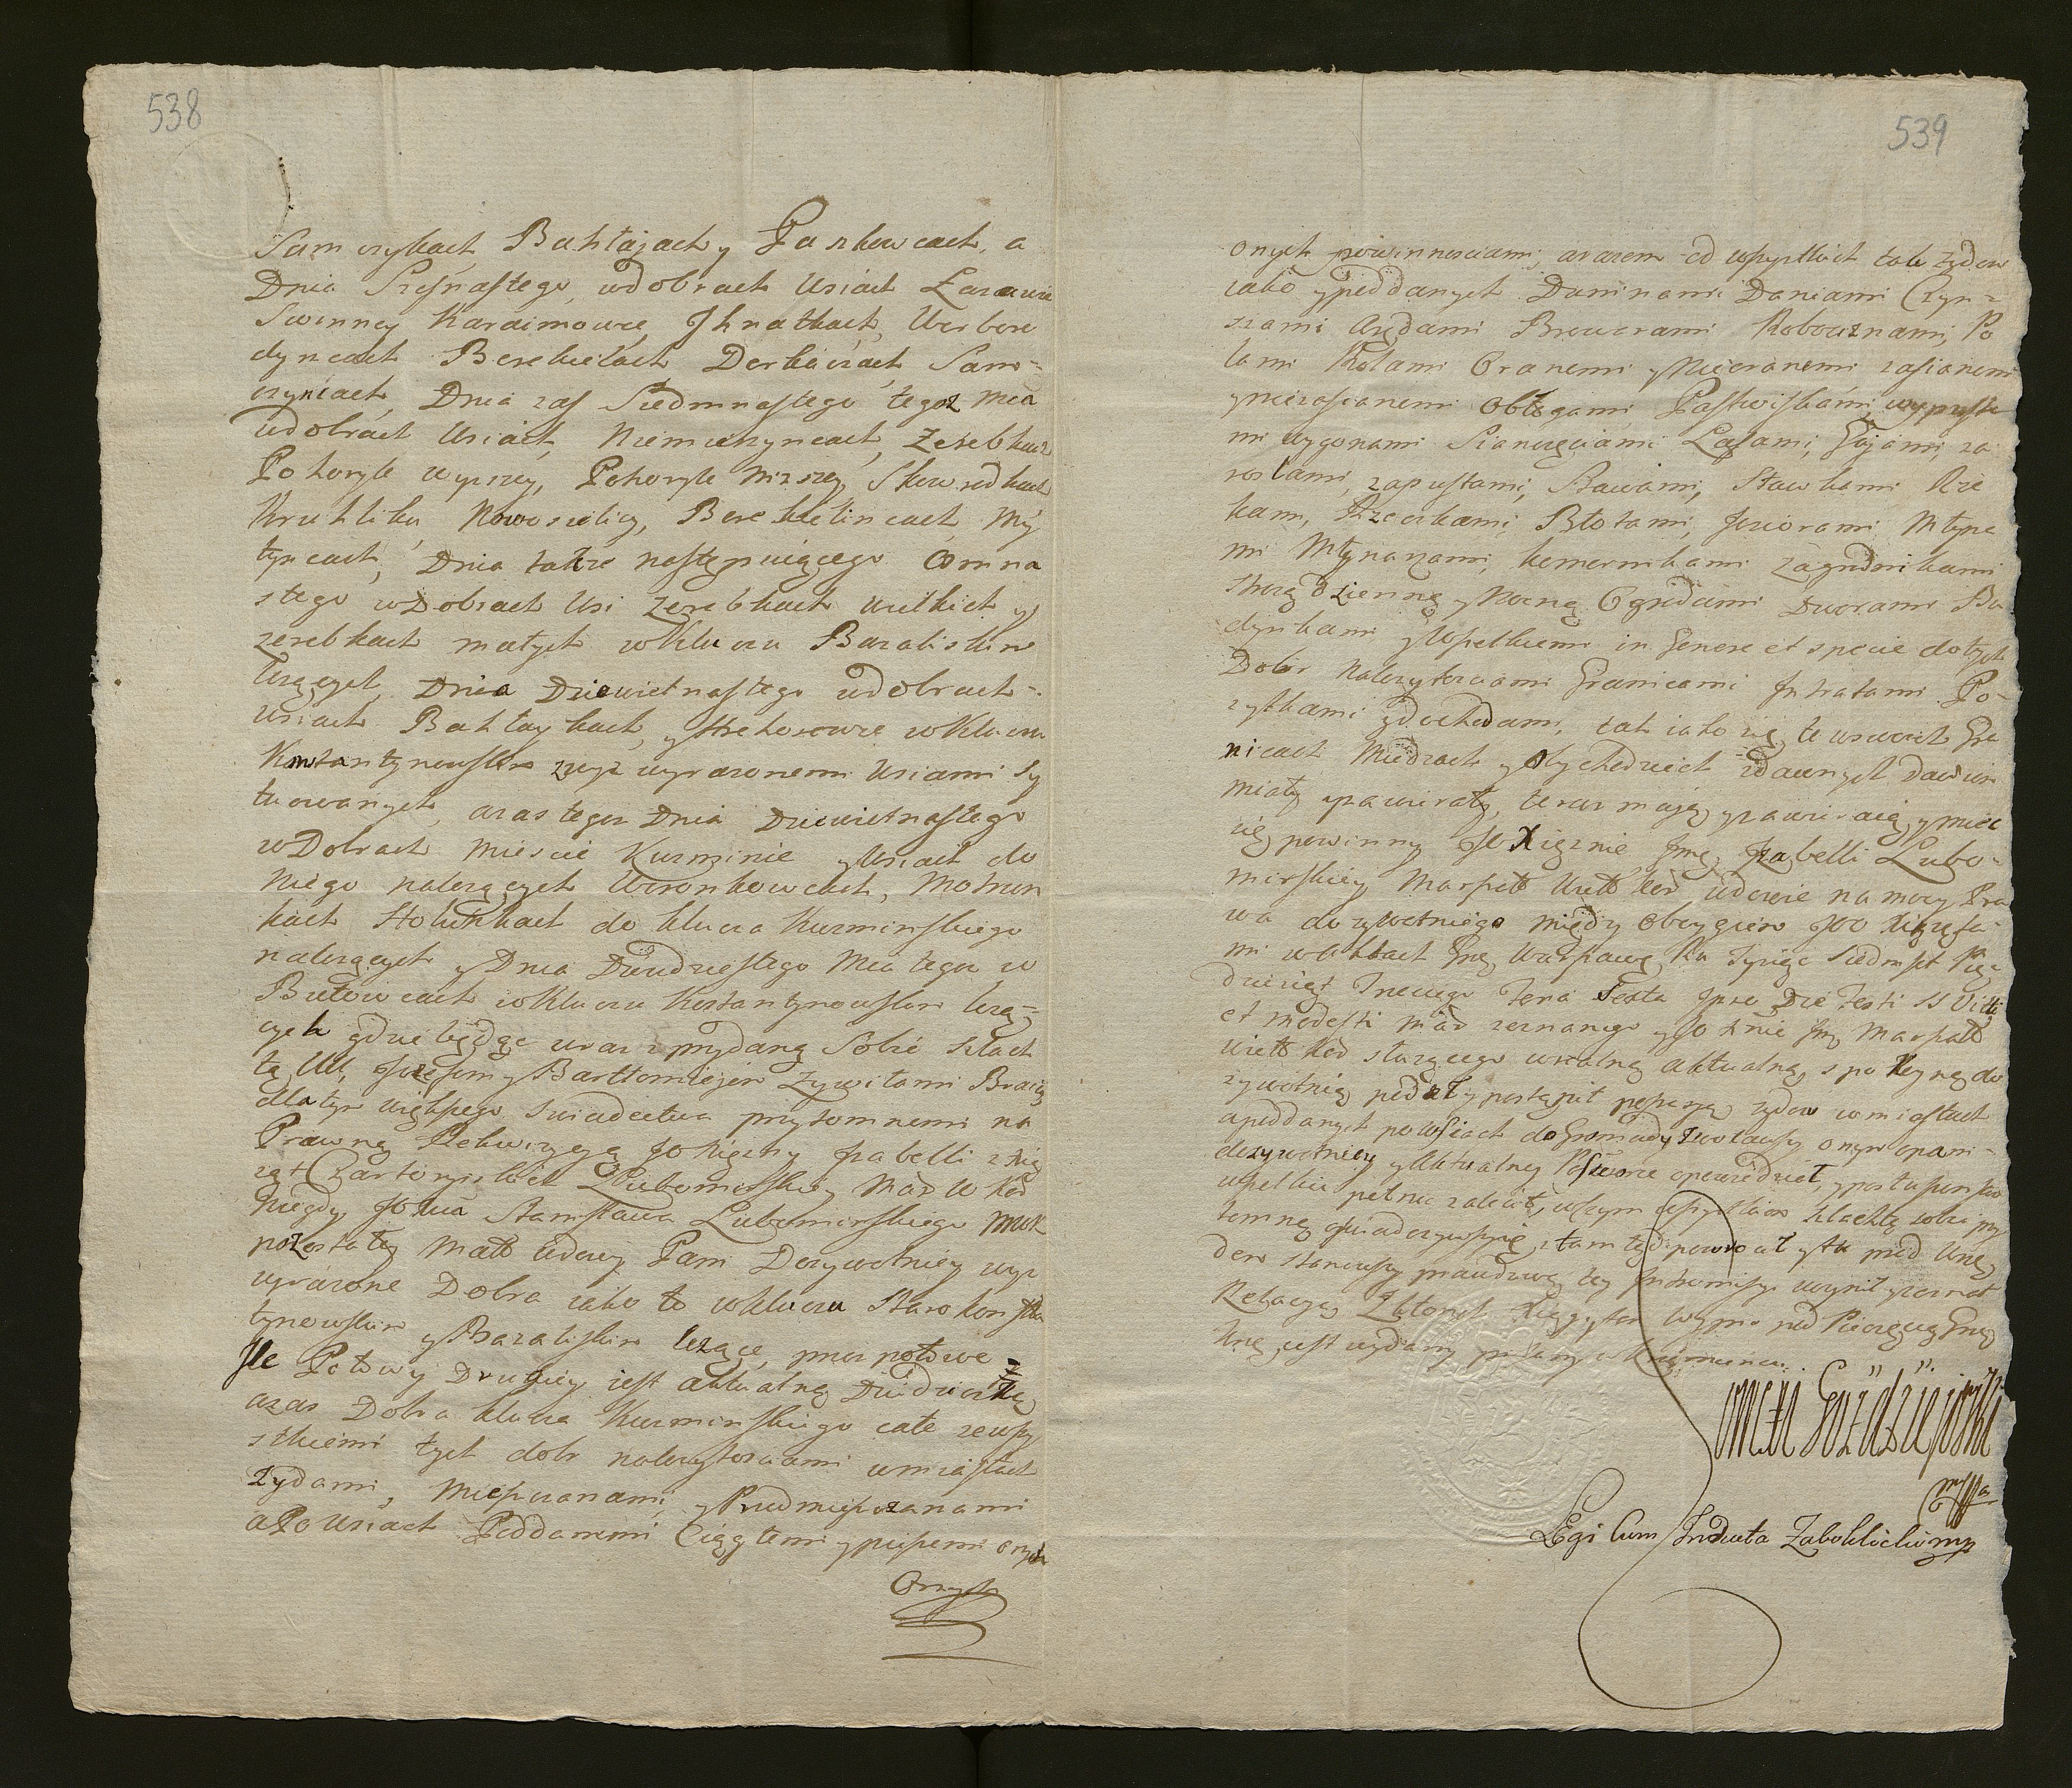 538
Samczykach, Bahłajach y Paszkowcach, a
Dnia Szesnastego, wdobrach Wsiach Łazawie
Swinney Karaimowce Jhnatkach, Werboro
dyncach Berehelach Derkaczach Sam-
czyncach, Dnia zaś Siedmnastego tegoż Mca
wdobrach Wsiach, Niemierzyncach, Zerebkach
Pohoryle wyższey, Pohoryle Niższey, Skowrodkach
Kruhliku, Nowosielicy, Berehelincach, My
tyncach, Dnia także następuiącego Osmna
stego wDobrach Wsi Zerebkach wielkich y
zerebkach małych wKluczu Bazaliskim
leżących, Dnia Dziewietnastego wdobrach
wsiach Bahłaykach, y Hrehorowce wKluczu
Konstantynowskim zwyż wyrazonemi Wsiami Sy
tuowanych, wraz tegoz Dnia Dziewietnastego
wDobrach Miescie Kuzminie y Wsiach do
Niego nalezących Woronkowcach, Motrun
kach Hołunkach do klucza Kuzminskiego
nalezących y Dnia Dwudziestego Mca tegoz w
Butowcach wKluczu Kostantynowskim leżą-
cych gdzie będąc wraz z przydaną Sobie Szlach
tą UU, Jozefem y Bartłomiejem Zywiłami Bracią
dla tym większego Swiadectwa przytomnemi na
Prawną Rekwizycyą JO Xiężny Jzabelli z Xią
żąt Czartoryskich Lubomirskiey Mar W Kor
Niegdy JO Xcia Stanisława Lubomirskiego MWK
pozostałey Małż wdowy Pani Dozywotniey wyż
wyrazone Dobra iako to wkluczu Staro Konstan
tynowskim y Bazaliskim leżące, przez połowe
Jle Połowy Drugiey iest aktualną Dziedziczką
wraz Dobra klucza Kuzminskiego całe zewszy
stkiemi tych dobr nalezytosciami wmiastach
Zydami, Mieszczanami, y Przedmieszczanami
a Po Wsiach Poddanemi Ciągłemi y pieszemi onych
Onych
539
onych powinnosciami, a razem od wszystkich tak Zydow
iako y poddanych Daninami Daniami Czyn-
szami Arędami Browarami Robociznami, Po
lami Rolami Oranemi y Nieoranemi zasianemi
y niezasianemi Obłogami, Pastwiskami, wypusta
mi wygonami Sianozęciami Lasami, Gajami, za
roslami, zapustami, Stawami, Stawkami Rze
kami, Rzeczkami, Błotami, Jeziorami Młyna
mi Młynarzami, komornikami zagrodnikami
Strożą dzienną y Nocną Ogrodami Dworami Bu
dynkami y Wszelkiemi in Genere et specie do tych
Dobr Nalezytosciami Granicami Jntratami Po-
zytkami y dochodami, tak iako się te wswoich Gra
nicach Miedzach y obychodziech zdawnych dawien
miały y zawierały, teraz maią y zawieraią, y miec
się powinny JO Xięznie Jmę Jzabelli Lubo-
mirskiey Marszałk Wielk Kor wdowie na mocy Pra
wa dozywotniego między Obygiem JOO Xiążęta-
mi wAktach Grę Warszaws Ru Tysiąc Siedmset Pięc
dziesiąt Trzeciego Feria Sexta Jpso Die Festi SS Viti
et Modesti Mar zeznanego y JO Xnie Jmę Marszałk
Wielk Kor słuzącego wrealną aktualną, spokoyną do
zywotnią podał y postąpił possessyą zydow wmiastach
a poddanych po wsiach do Gromady Zwoławszy onym o pani-
dozywotniey y Aktualney Possessorce opowiedział, y posłuszenstwo
wszelkie pełnic zalecił, wczym wszystkim szlachtą sobie przy
tomną oswiadczywszy się, ztamtąd powrocił y tu przed Urzę
dem stanowszy prawdziwą tey Jntromissyi uczynił y zeznał
Relacyą Zktorych Xiąg y ten wypis pod Pieczęcią Grę
Krzę iest wydany pisany w Krzemiencu.
Legi Cum Jnducta Zabokłicki mp